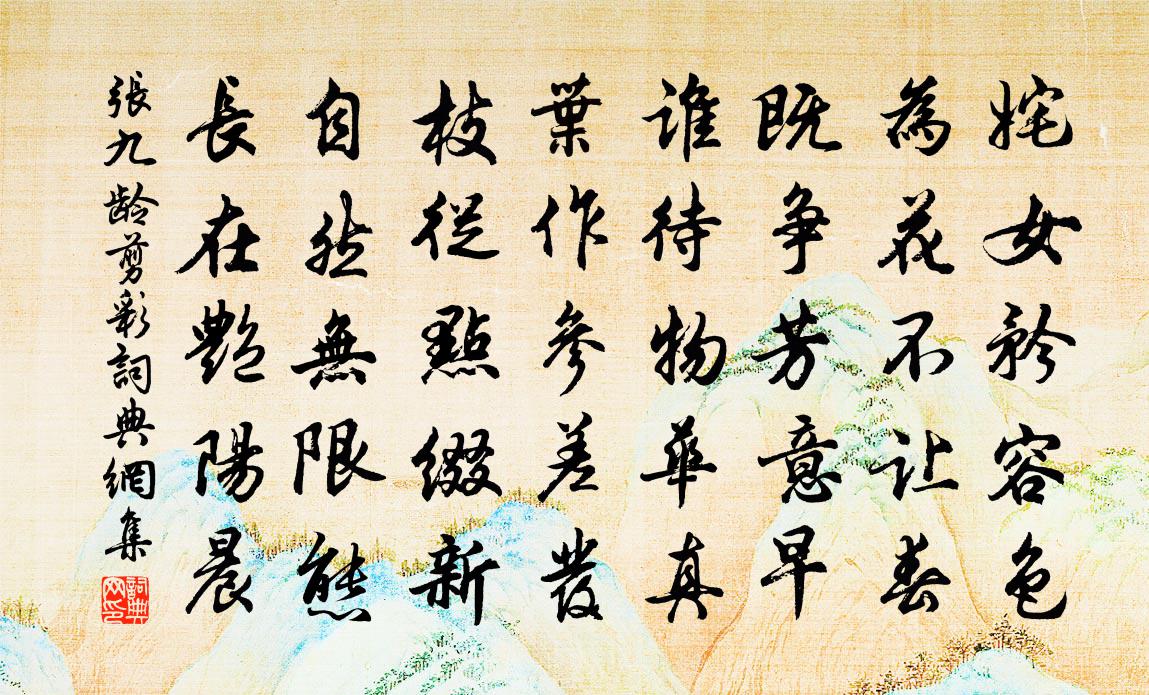 姹女矜容色
為花不让春
既争芳意早
谁待物華真
葉作參差發
枝從點綴新
自然無限態
長在艷陽晨
張九龄剪彩詞典網集
詞典网印